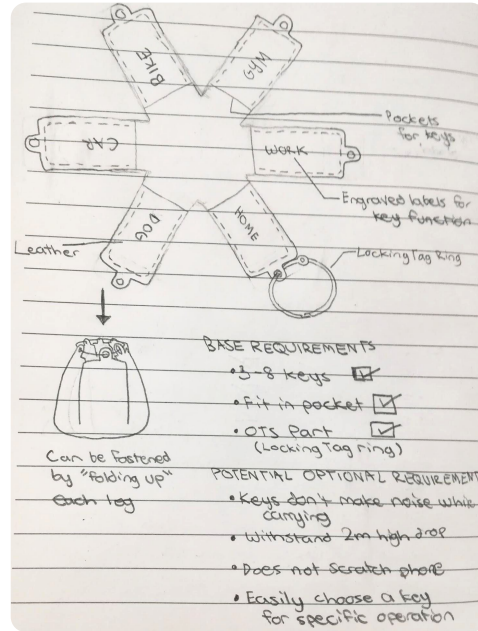 BIKE
GYM
CAR
WORK
DOG
HOME
Pockets
for keys
Engraved labels for
key function
Leather
Locking Tag Ring
Can be fastened
by "folding up"
each leg
BASE REQUIREMENTS
• 3-8 keys
• Fit in pocket
• OTS Part
(Locking Tag ring)
POTENTIAL OPTIONAL REQUIREMENT
• Keys don't make noise while
carrying
• Withstand 2m high drop
• Does not scratch phone
• Easily choose a key
for specific operation